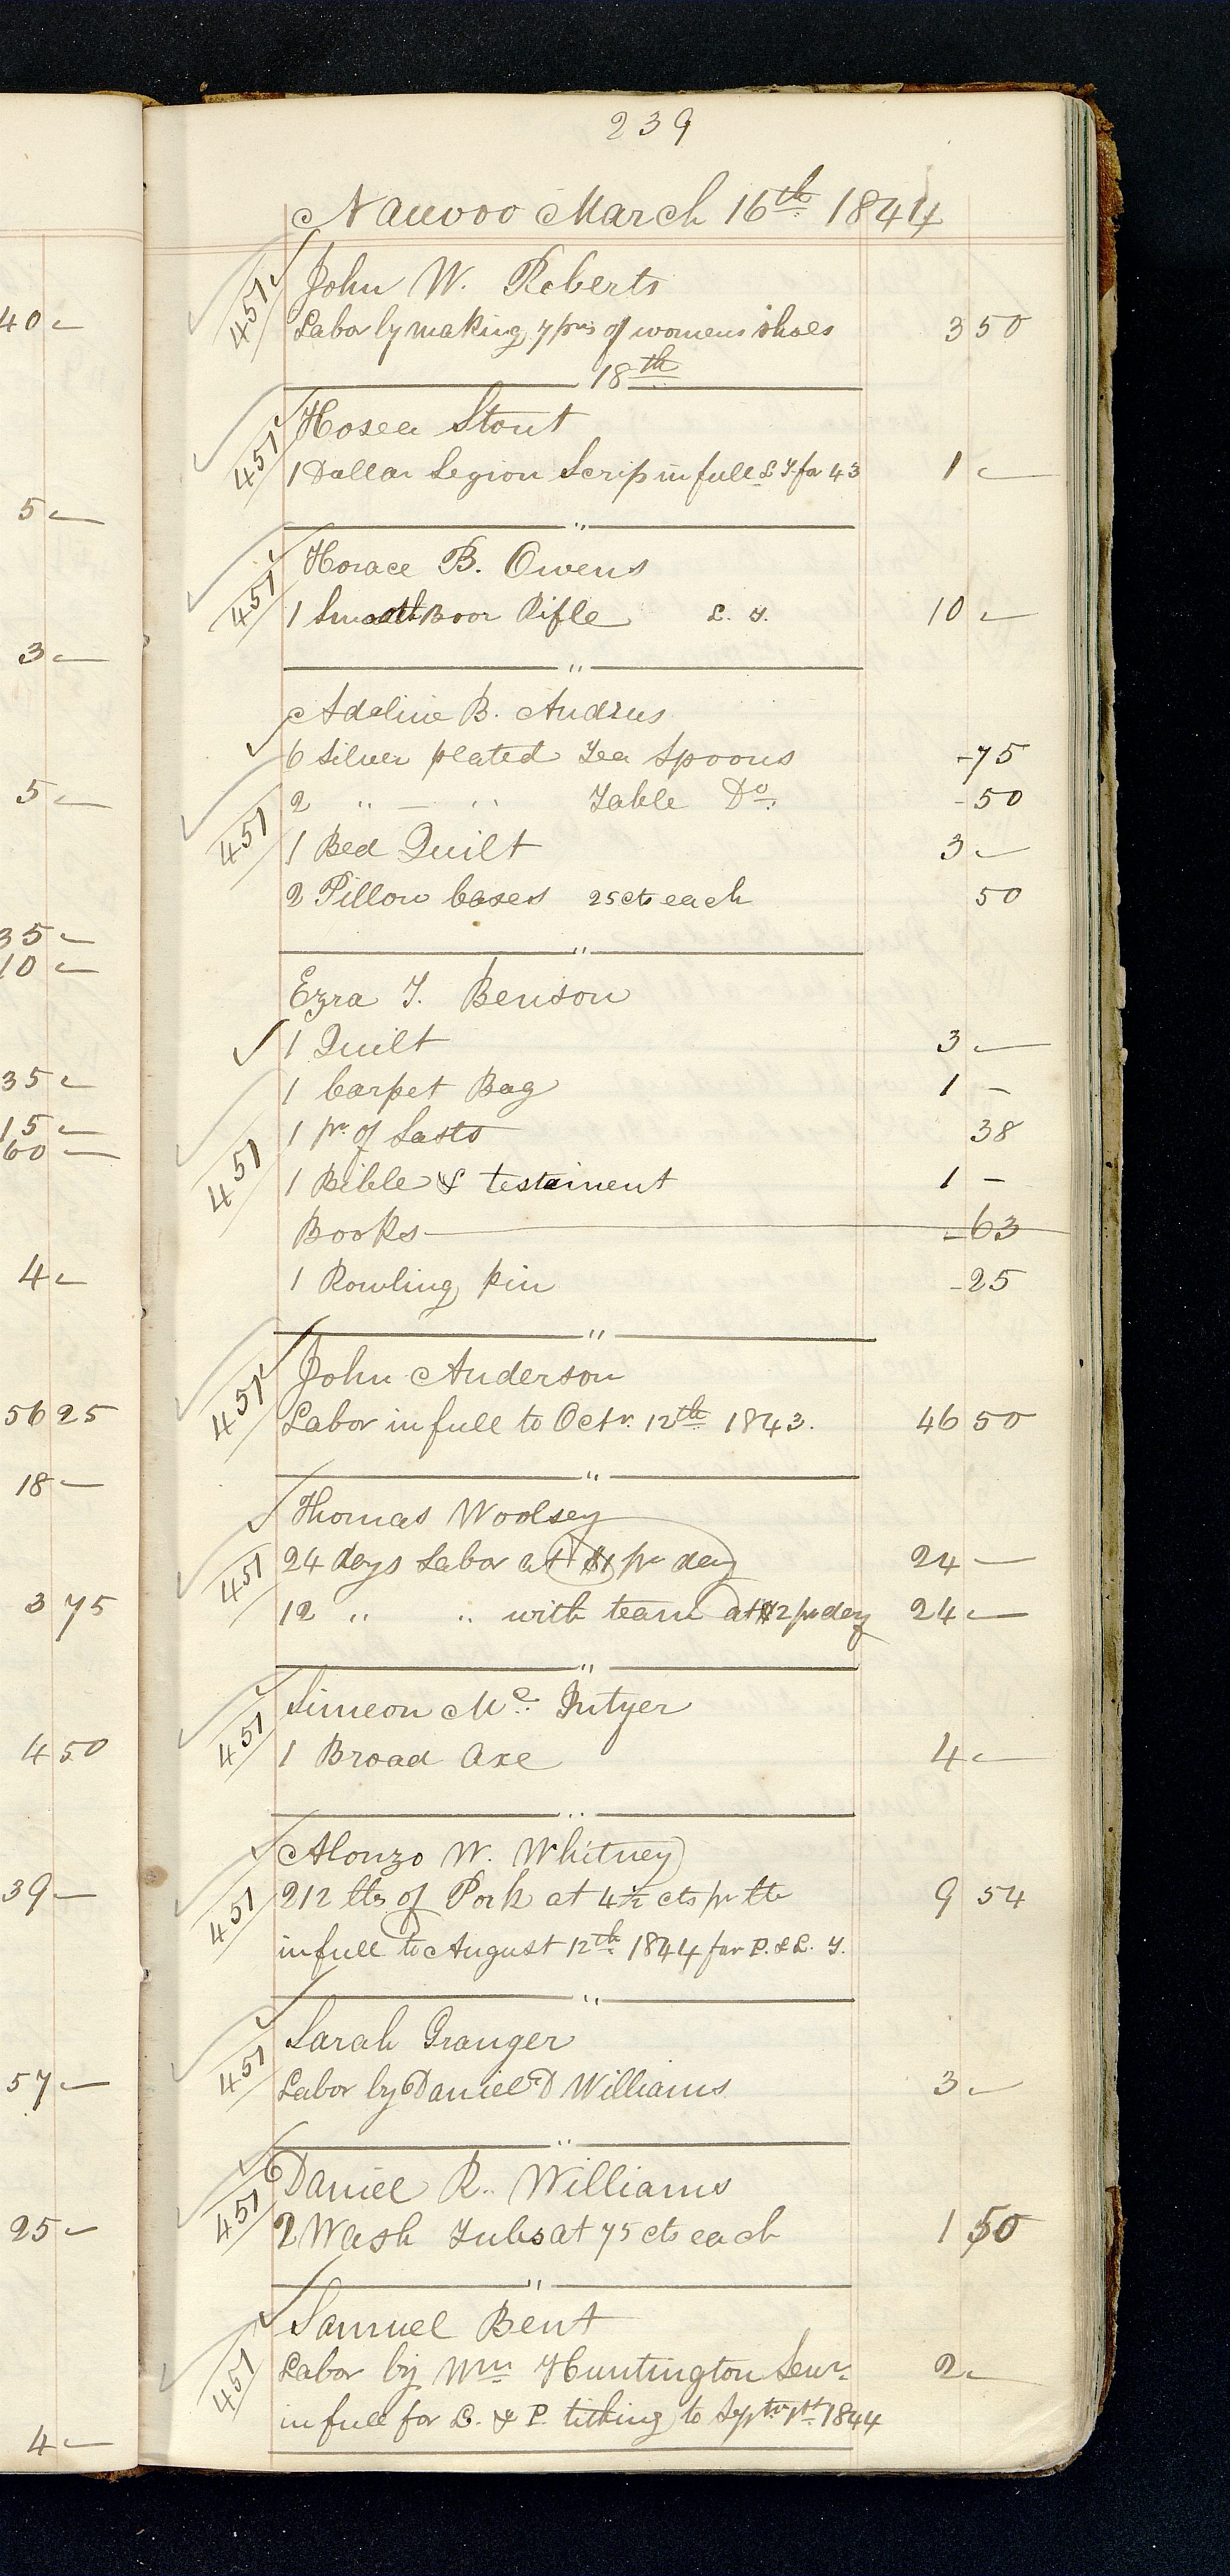 239
Nauvoo March 16th 1844
451 John W. Roberts
40 -
Labor by making 7 prs of womens shoes 3 50
18th
451 Hosea Stout
1 Dollar Legion Scrip in full L T. for 43 1 -
5 -
451 Horace B. Owens
1 Smooth Boor Rifle L. T. 10 -
3 -
Adeline B. Andrus
6 Silver plated Tea Spoons - 75
5 -
2 " — " Table Do. - 50
451 1 Bed Quilt 3 -
2 Pillow Cases 25 cts each 50
35 -
10 -
Ezra T. Benson
1 Quilt 3 -
35 -
1 Carpet Bag 1 -
15 -
1 pr. of Lasts 38
60 -
451 1 Bible & testament 1 -
Books - 63
4 -
1 Rowling Pin - 25
451 John Anderson
56 25
Labor in full to Octr. 12th 1843. 46 50
18 -
Thomas Woolsey
451 24 days Labor at $1 pr day 24 -
3 75
12 " " with team at $2 pr day 24 -
Simeon Mc.
451 1 Broad Axe 4 -
4 50
Alonzo W. Whitney
39 -
451 212 lbs of Pork at 4 1/2 cts pr lb 9 54
in full to August 12th 1844 for P. & L. T.
Sarah Granger
57 -
451 Labor by Daniel D Williams 3 -
Daniel R. Williams
25 -
451 2 Wash Tubs at 75 cts each 1 50
Samuel Bent
451 Labor by Wm Huntington Senr. 2 -
in full for L. & P. tithing to Septr 1st 1844
4 -